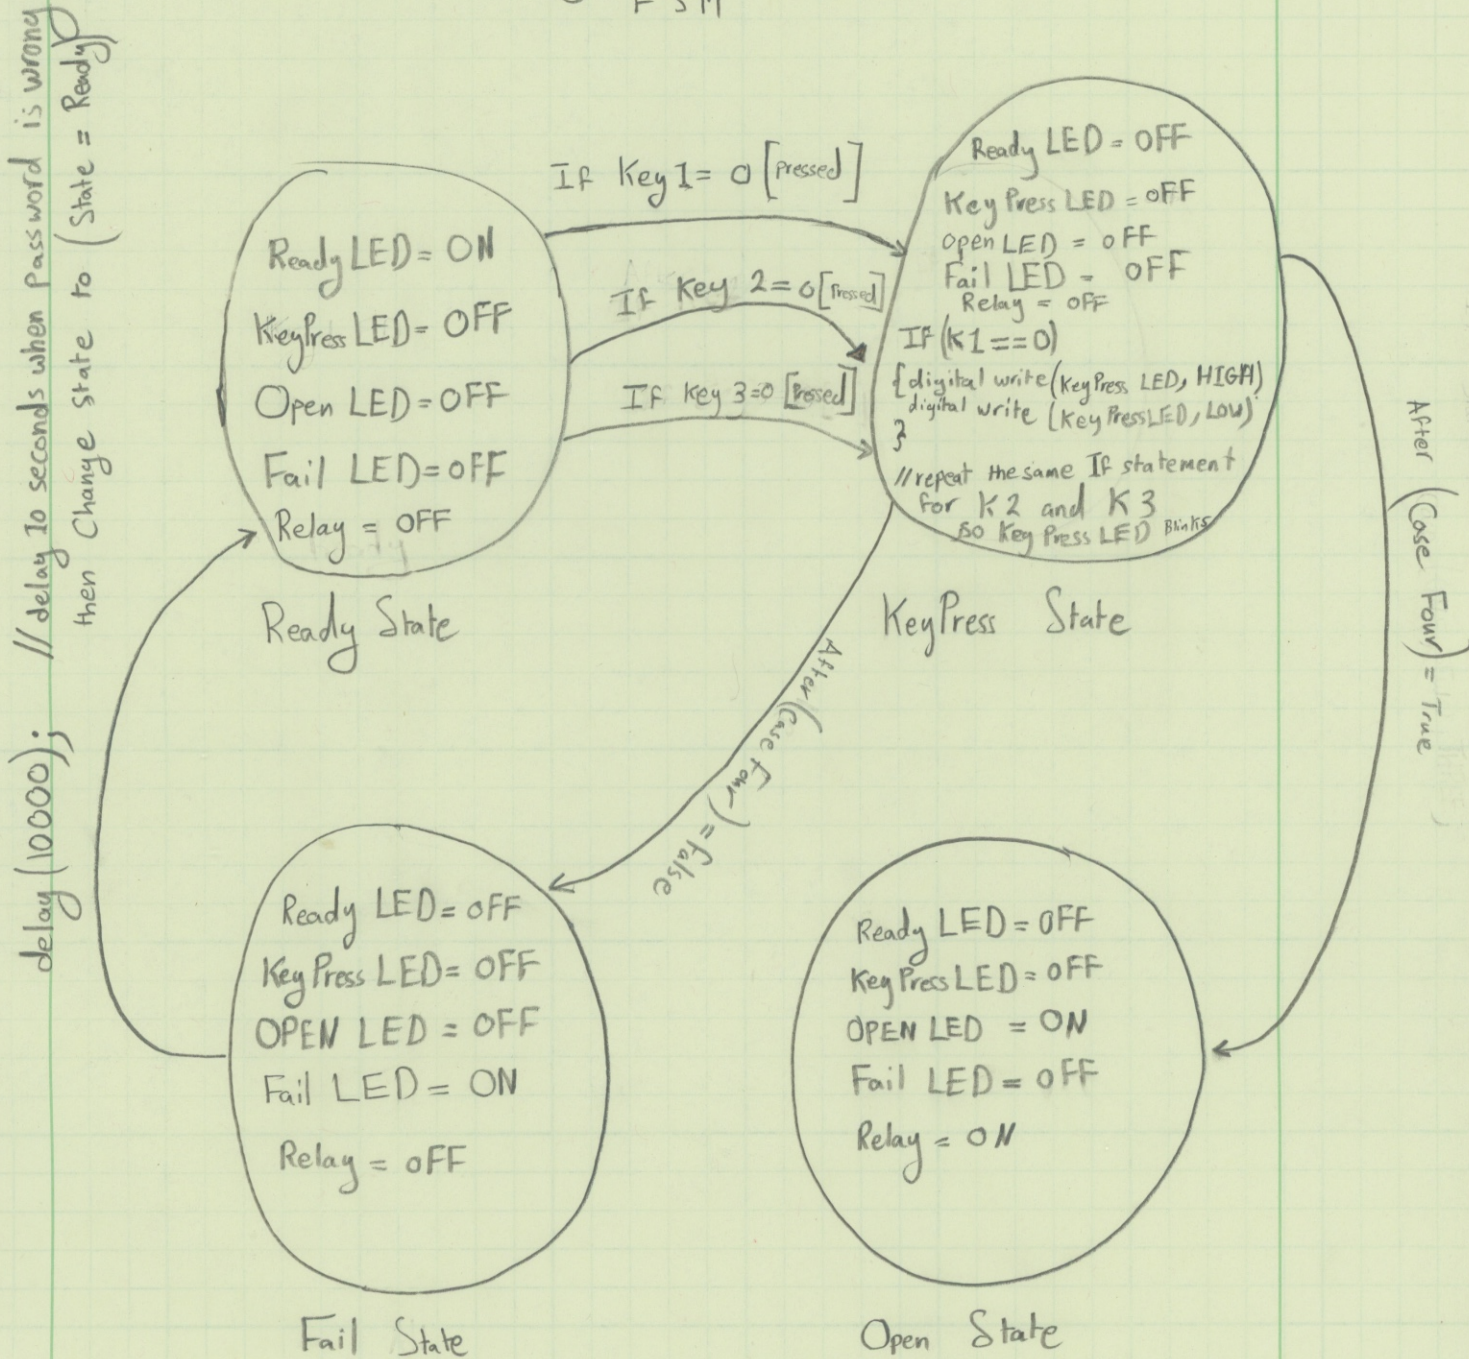 FSM
// delay 10 seconds when password is wrong
then Change State to (State = Ready)
delay(10000);
If Key1= 0 [Pressed]
If Key 2=0 [Pressed]
If Key 3=0 [Pressed]
Ready LED= ON
KeyPress LED= OFF
Open LED=OFF
Fail LED=OFF
Relay = OFF
Ready State
Ready LED = OFF
Key Press LED = OFF
Open LED = OFF
Fail LED - OFF
Relay = OFF
If (K1==0)
{digital write(KeyPress LED, HIGH)
digital write (Key PressLED, LOW)
}
// repeat the same If statement
for K2 and K3
so Key Press LED Blinks
KeyPress State
After (Case Four) = True
After (Case Four) = False
Ready LED= OFF
Key Press LED= OFF
OPEN LED = OFF
Fail LED = ON
Relay = OFF
Fail State
Ready LED = OFF
Key Press LED= OFF
OPEN LED = ON
Fail LED = OFF
Relay = ON
Open State